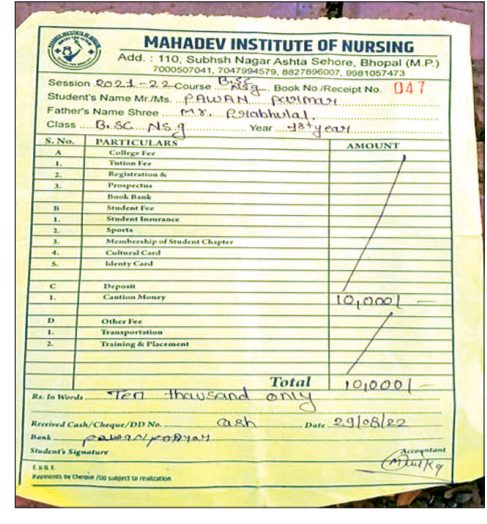 MAHADEV INSTITUTE OF NURSING
Add. : 110, Subhsh Nagar Ashta Sehore, Bhopal (M.P.)
7000507041, 7047994579, 8827896007, 9981057473
Session 2021-22 Course B.Sc Nsg Book No./Receipt No. 047
Student's Name Mr./Ms. PAWAN Parmar
Father's Name Shree Mr. Prabhulal
Class B.SC Nsg Year 1st year
S. No. PARTICULARS AMOUNT
A College Fee
1. Tution Fee
2. Registration &
3. Prospectus
Book Bank
B Student Fee
1. Student Insurance
2. Sports
3. Membership of Student Chapter
4. Cultural Card
5. Identy Card
C Deposit
1. Caution Money 10,000/-
D Other Fee
1. Transportation
2. Training & Placement
Total 10,000/-
Rs. In Words Ten thousand only
Received Cash/Cheque/DD No. cash Date 29/08/22
Bank
Student's Signature Accountant
E. & O. E.
Payments by Cheque /DD subject to realization